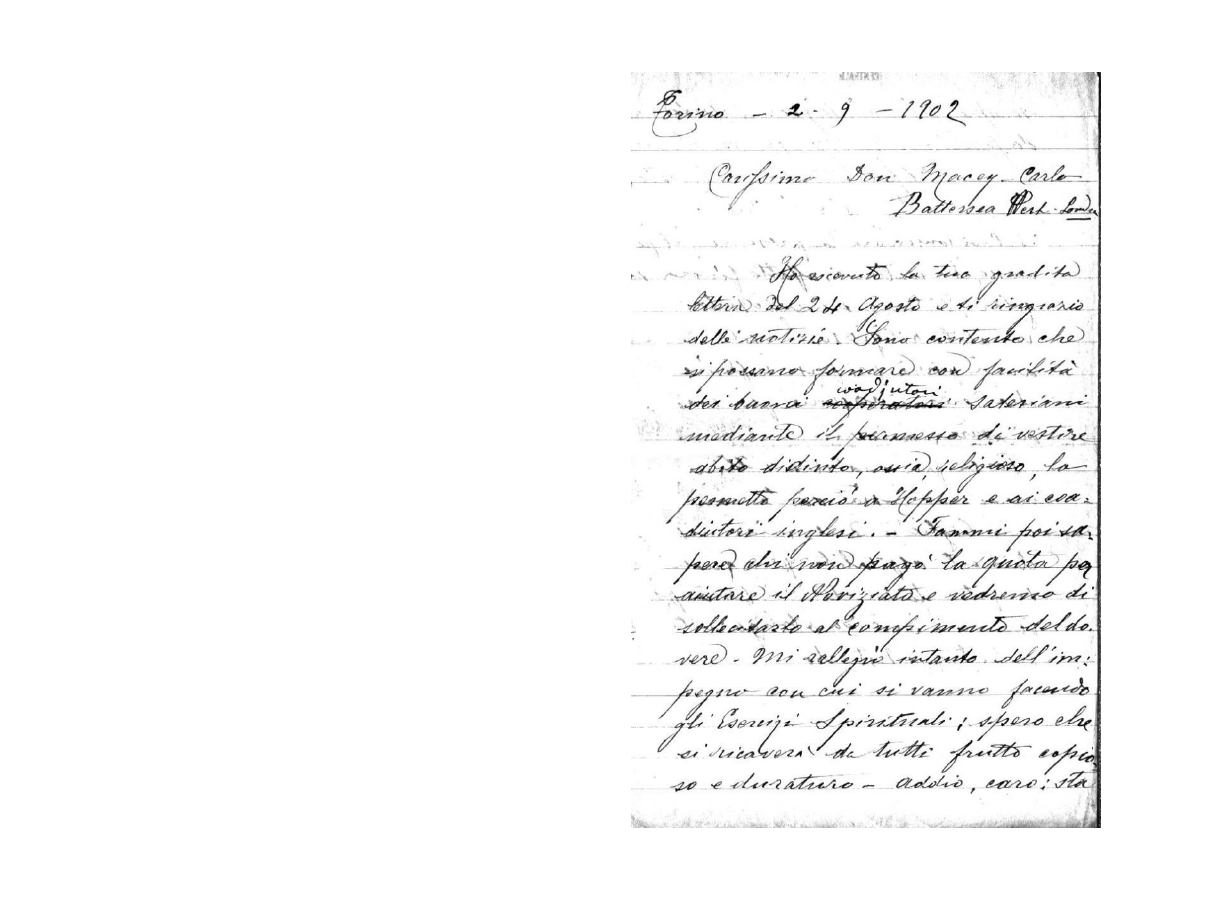 Torino - 2 - 9 - 1902
Carissimo Don Macey Carlo
Battersea West - Londra
Ho ricevuto la tua gradita
lettera del 24 Agosto e ti ringrazio
delle notizie. Sono contento che
si possano formare con facilità
coadjutori
dei buoni cooperatori salesiani
mediante il permesso di vestire
abito distinto, ossia, religioso, lo
permetto perciò a Hopper e ai coa=
diutori inglesi. - Fammi poi sa=
pere chi non pagò la quota per
aiutare il Noviziato e vedremo di
sollecitarlo al compimento del do.
vere - Mi rallegro intanto dell'im=
pegno con cui si vanno facendo
gli Esercizi Spirituali; spero che
si ricaverà da tutti frutto copio=
so e duraturo - Addio, caro; sta